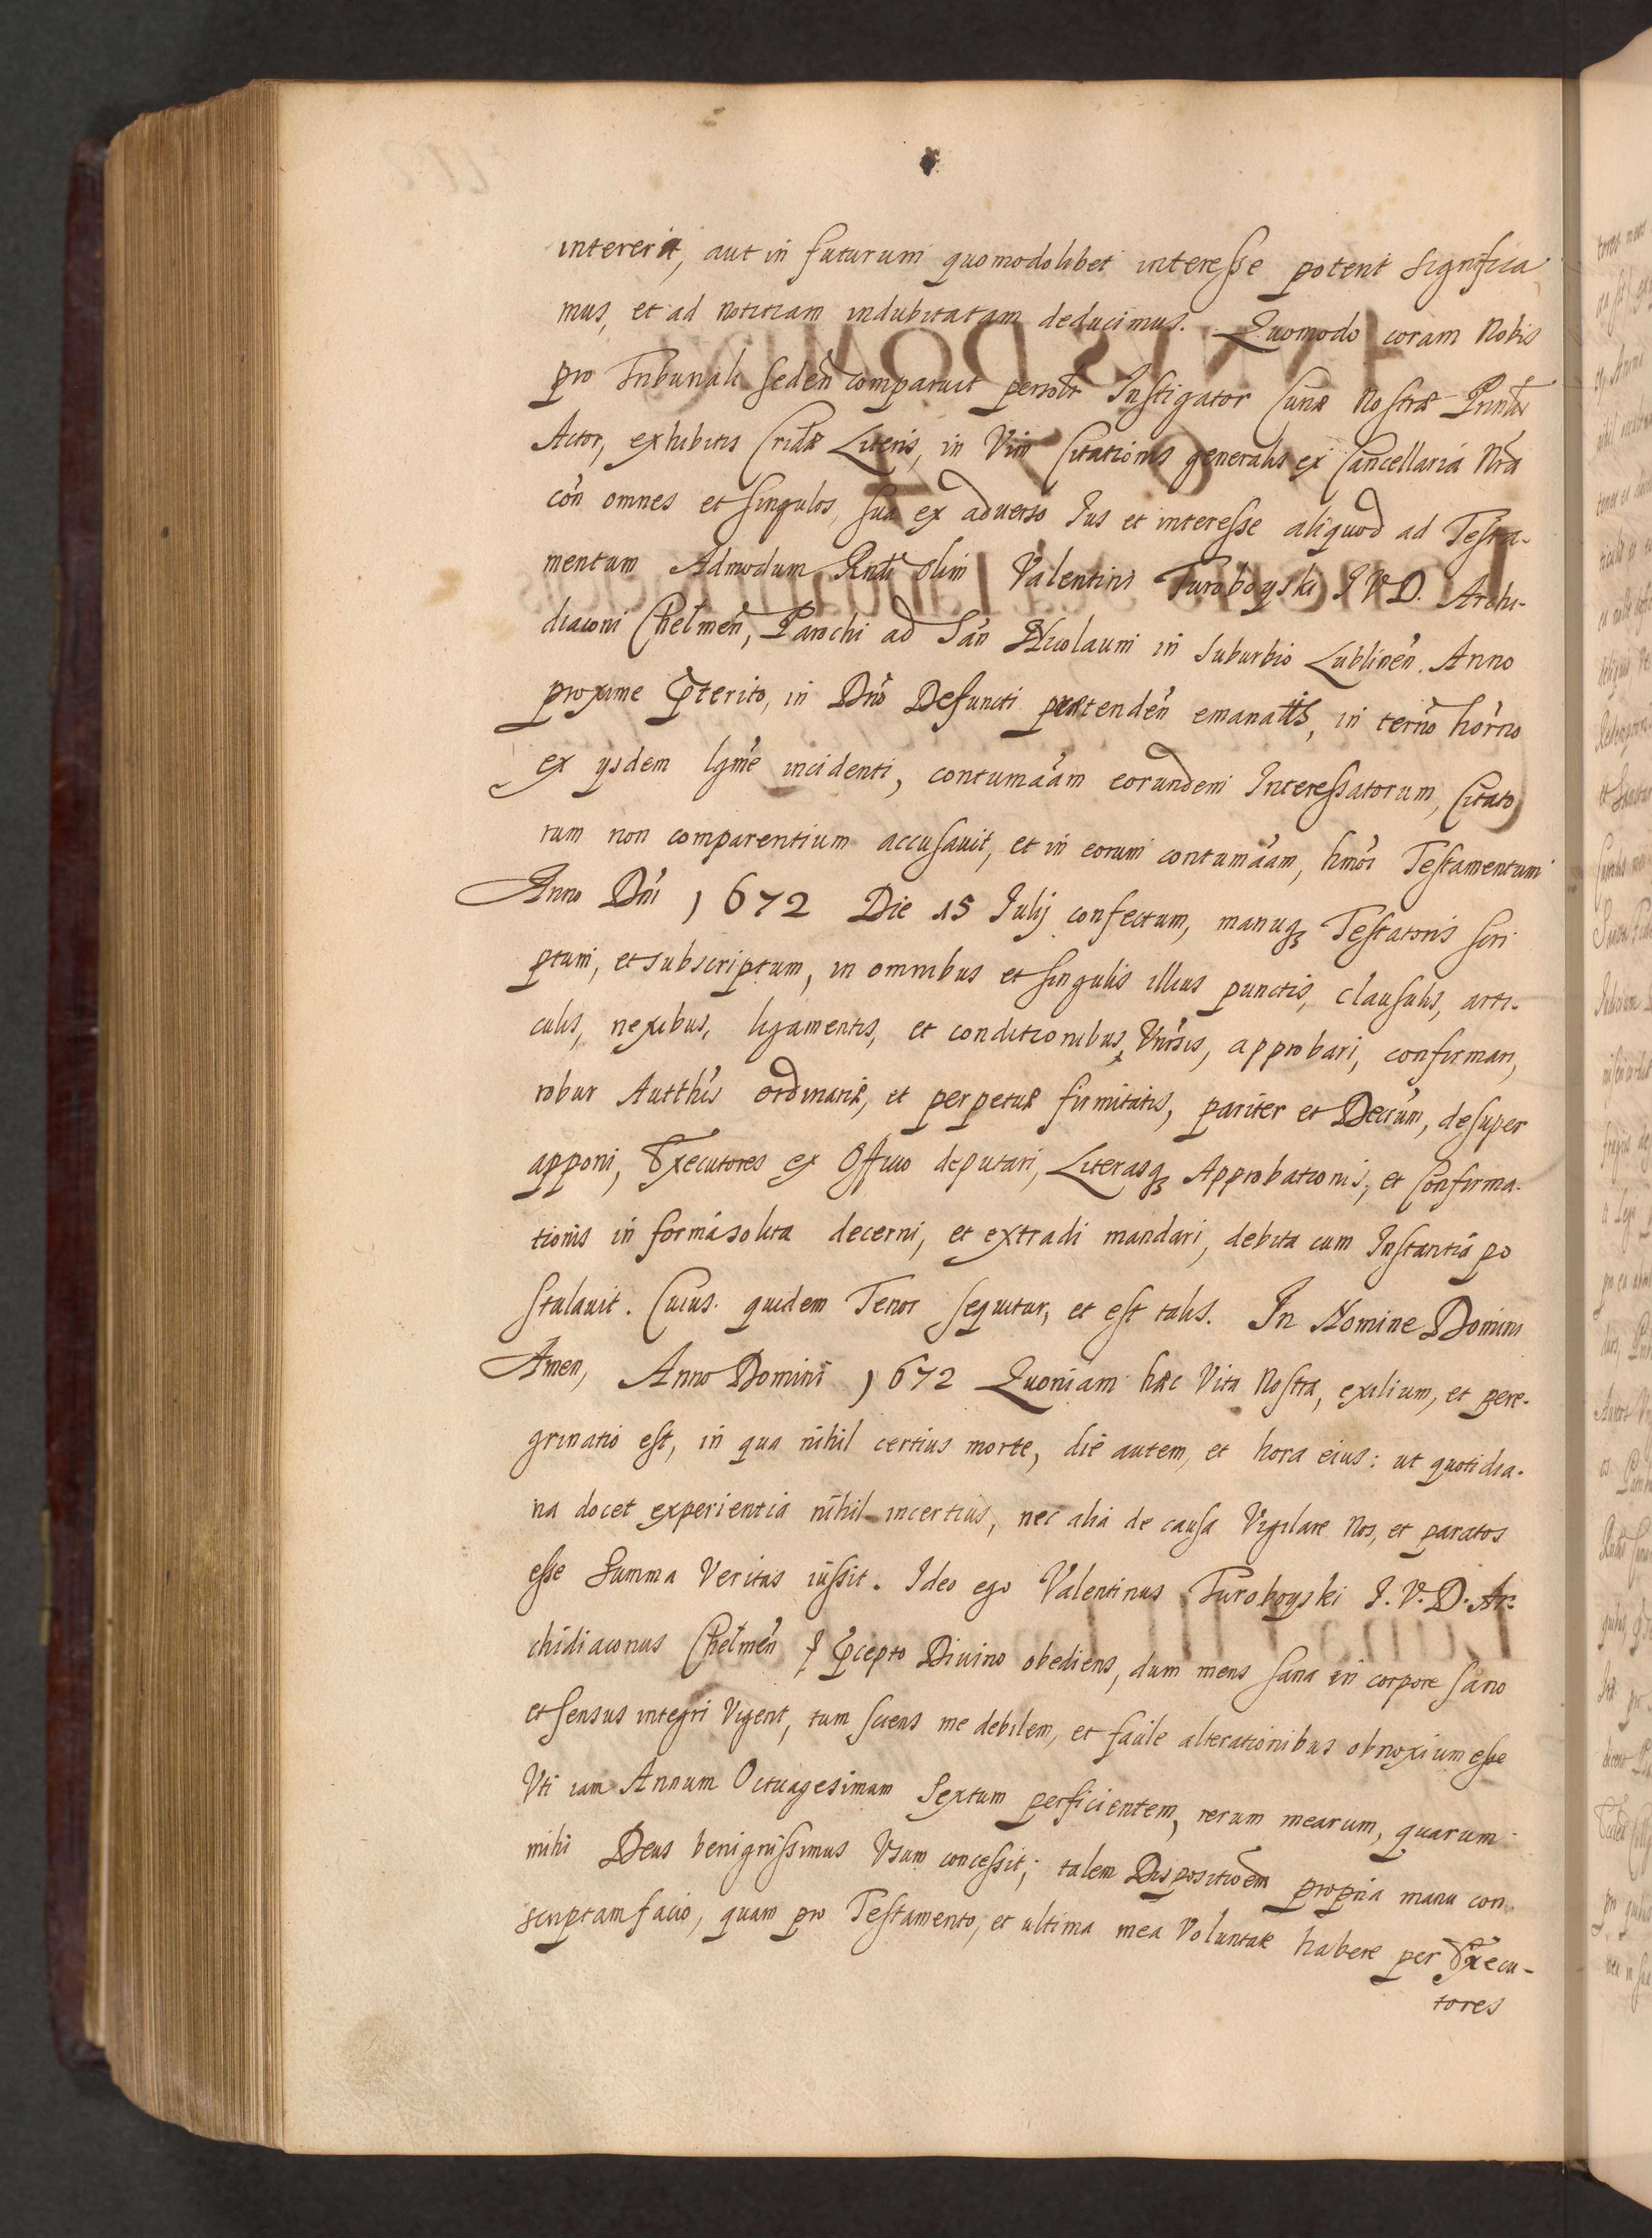 intererit, aut in futurum quomodolibet interesse poterit significa
mus, et ad notitiam indubitatam deducimus. Quomodo coram Nobis
pro Tribunali seden̄ comparuit personlr Instigator Curiæ Nostræ
Actor, exhibitis Cridæ Literis, in Vim Citationis generalis ex Cancellaria Nrã
con̄ omnes et singulos, sua ex adverso Ius et interesse aliquod ad Testa-
mentum Admodum Rndi olim Valentini Turoboyski I V D. Archi-
diaconi Chelmen̄, Parochi ad San̄ Nicolaum in Suburbio Lublinen̄. Anno
proxime p̄terito, in Dno Defuncti prætenden̄ emanatis, in termo horno
ex ysdem lgme incidenti, contumaãm eorundem Interessatorum, Citato
rum non comparentium accusavit, et in eorum contumaãm, hmoi Testamentum
Anno Dni 1672 Die 15 Iulij confectum, manuq3 Testatoris scri
ptum, et subscriptum, in omnibus et singulis illius punctis, clausulis, arti-
culis, nexibus, ligamentis, et conditionibus, Vnirsis, approbari, confirmari,
robur Autthis ordinariæ, et perpetuæ firmitatis, pariter et Decrum, desuper
apponi, Executores ex Officio deputari, Literasq3 Approbationis, et Confirma-
tionis in forma solita decerni, et extradi mandari, debita cum Instantia po
stulavit. Cuius quidem Tenor sequitur, et est talis. In Nomine Domini
Amen, Anno Domini 1672 Quoniam hæc Vita Nostra, exilium, et pere-
grinatio est, in qua nihil certius morte, die autem, et hora eius: ut quotidia-
na docet experientia nihil incertius, nec alia de causa Vigilare Nos, et paratos
esse Summa Veritas iussit. Ideo ego Valentinus Turoboyski I. V. D. Ar-
chidiaconus Chelmen̄ p̄cepto Divino obediens, dum mens sana in corpore sano
et sensus integri Vigent, tum sciens me debilem, et facile alterationibus obnoxium esse
Vti iam Annum Octuagesimum Sextum perficientem, rerum mearum, quarum
mihi Deus benignissimus Vsum concessit; talem Dispositioem propria manu con
scriptam facio, quam pro Testamento, et ultima mea Voluntate habere per Execu-
tores